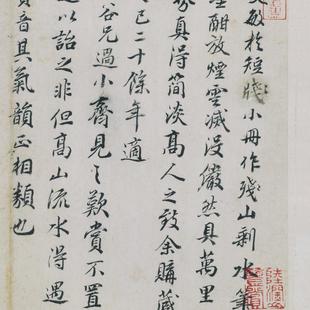 於短牋小冊作殘山剩水氣
酣放煙雲滅沒儼然具萬里
真得簡淡高人之致余購藏
已二十餘年適
谷兄過小齋見之歎賞不置
以詒之非但高山流水得遇
音具氣韻正相類也